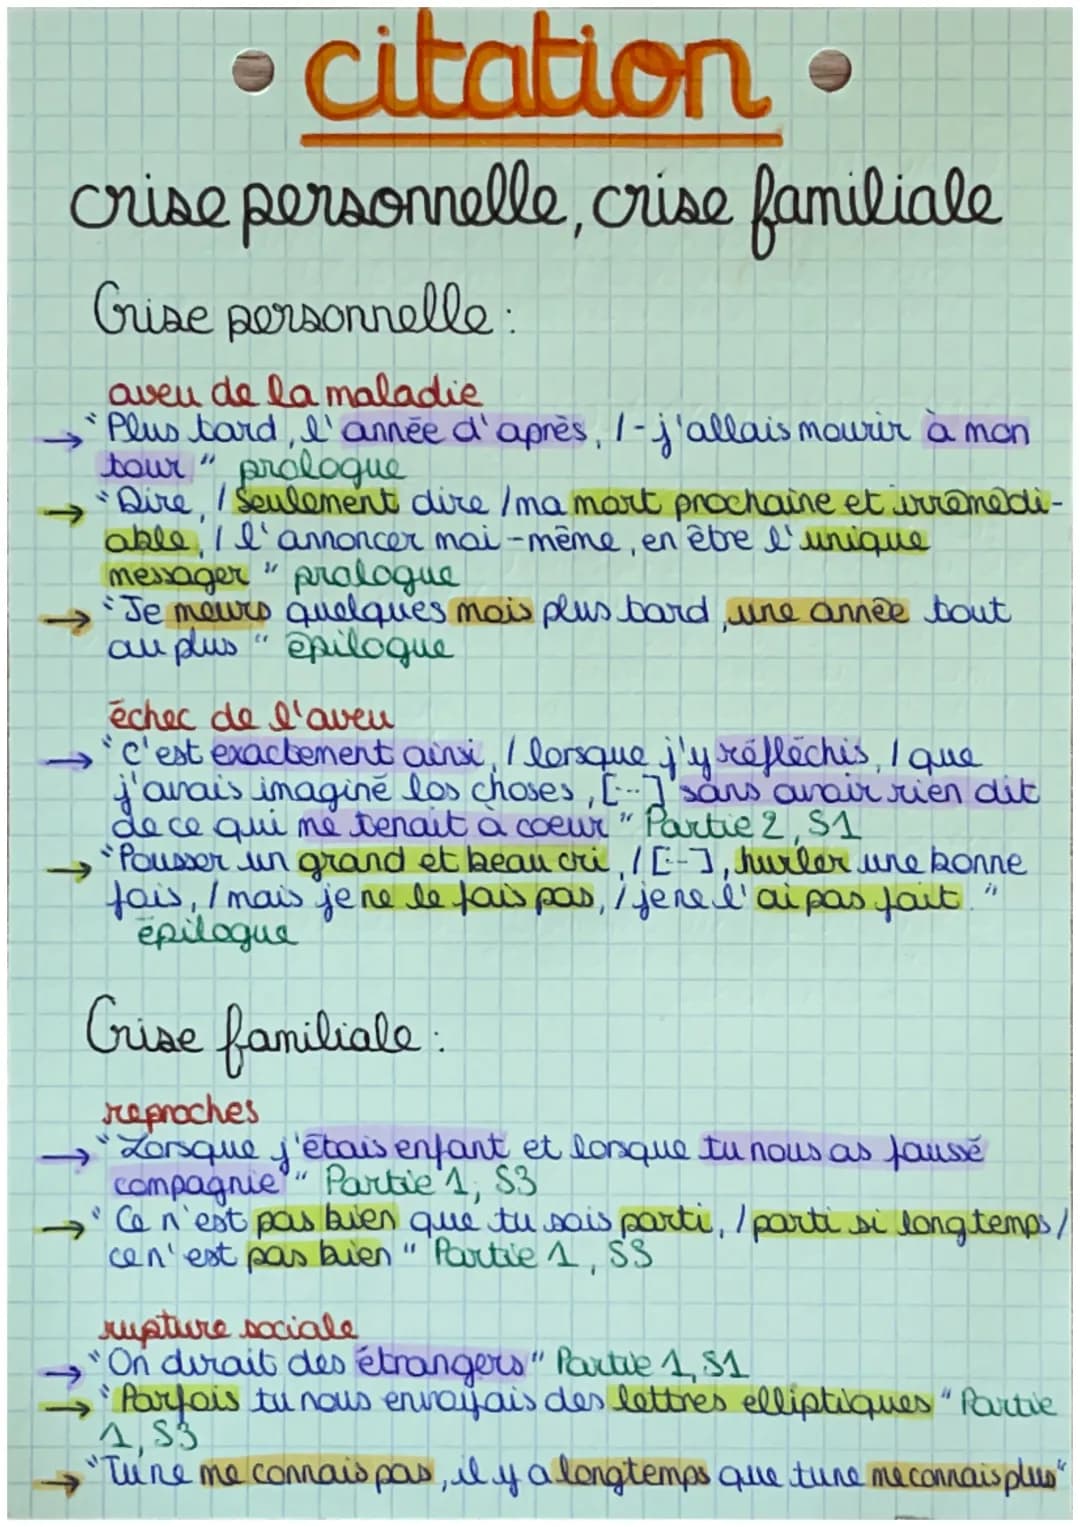 • citation •
crise personnelle, crise familiale
Crise personnelle :
aveu de la maladie
→ "Plus tard, l'année d'après, / - j'allais mourir à mon
tour" prologue
→ "Dire, / Seulement dire / ma mort prochaine et irremédi-
able, / l'annoncer moi-même, en être l'unique
messager" prologue
→ "Je meurs quelques mois plus tard, une année tout
au plus" épilogue
échec de l'aveu
→ "c'est exactement ainsi, / lorsque j'y réfléchis, / que
j'avais imaginé los choses, [...] sans avoir rien dit
de ce qui me tenait à coeur" Partie 2, S1
→ "Pousser un grand et beau cri, / [...], hurler une bonne
fois, / mais je ne le fais pas, / je ne l'ai pas fait."
épilogue
Crise familiale :
reproches
→ "Lorsque j'étais enfant et lorsque tu nous as faussé
compagnie" Partie 1, S3
→ "Ce n'est pas bien que tu sois parti, / parti si longtemps /
ce n'est pas bien" Partie 1, S3
rupture sociale
→ "On dirait des étrangers" Partie 1, S1
→ "Parfois tu nous envoyais des lettres elliptiques" Partie
1, S3
→ "Tu ne me connais pas, il y a longtemps que tu ne me connais plus"